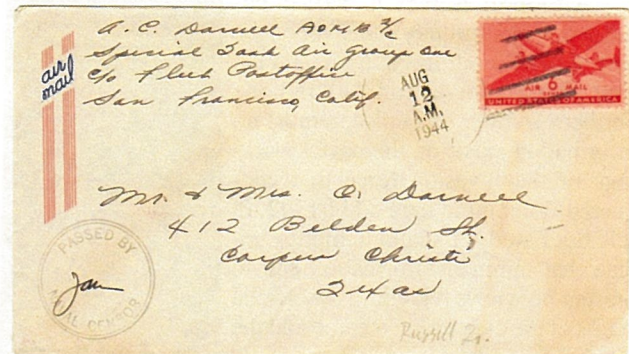 A. C. Darnell AOM 2/c
Special Task Air Group One
c/o Fleet Postoffice
San Francisco, Calif.
air
mail
AUG
12
A.M.
1944
AIR 6 MAIL
UNITED STATES OF AMERICA
Mr. & Mrs. O. Darnell
412 Belden St.
Corpus Christi
Texas
PASSED BY
NAVAL CENSOR
Russell